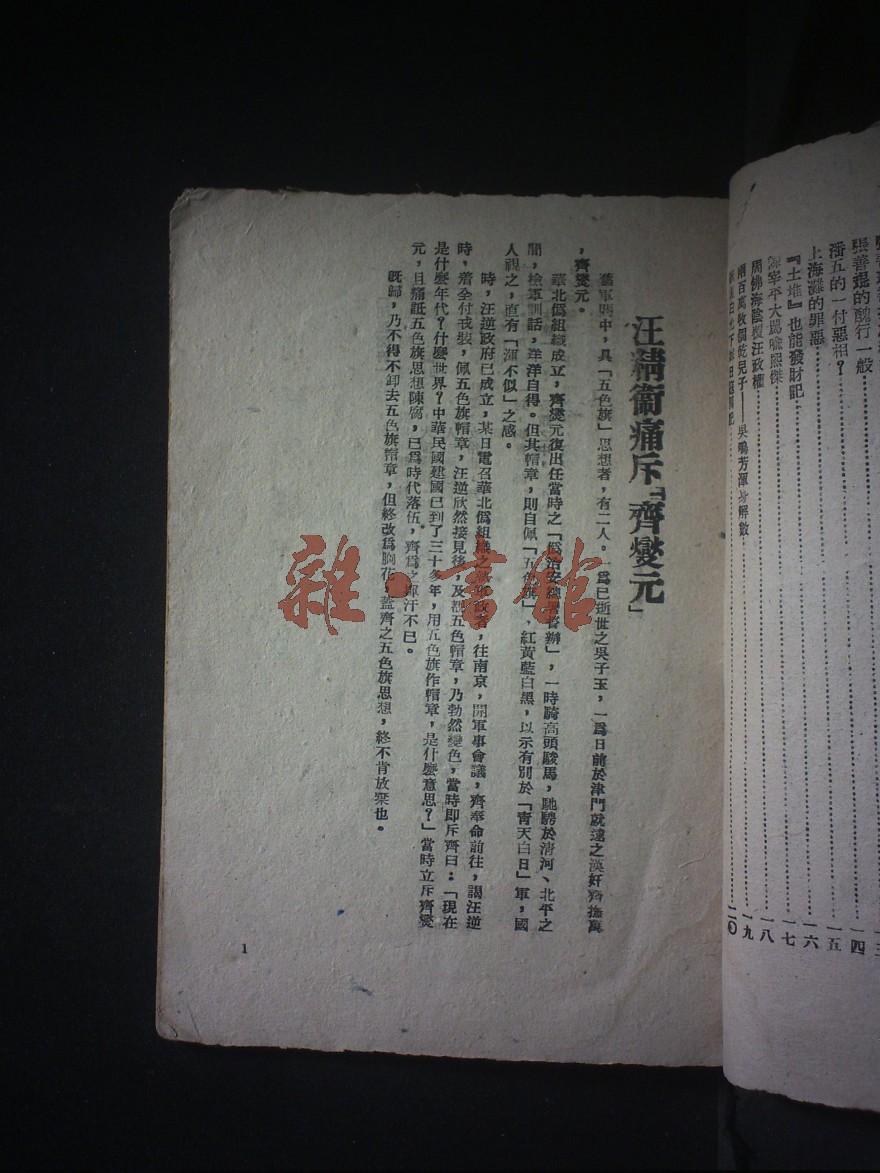 潘五的一付惡相?一五
上海灘的罪惡一六
『土堆』也能發財記一七
宰平大罵喩熙傑一八
周佛海陰 汪政權一九
兩百萬收個乾兒子——吳鳴芳渾身解數二〇
汪精衞痛斥「齊燮元」
舊軍閥中,具「五色旗」思想者,有二人。一爲已逝世之吳子玉,一爲日前於津門就逮之漢奸齊撫萬
,齊燮元。
華北僞組織成立,齊燮元復出任當時之「僞治安總署督辦」,一時騎高頭駿馬,馳騁於清河、北平之
間,檢軍訓話,洋洋自得。但其帽章,則自佩「五色旗」,紅黃藍白黑,以示有別於「青天白日」軍,國
人視之,直有「渾不似」之感。
時,汪逆政府已成立,某日電召華北僞組織之 政者,往南京,開軍事會議,齊奉命前往,謁汪逆
時,着全付戎裝,佩五色旗帽章,汪逆欣然接見後,及覩五色帽章,乃勃然變色,當時即斥齊曰:「現在
是什麼年代?什麼世界?中華民國建國已到了三十多年,用五色旗作帽章,是什麼意思?」當時立斥齊燮
元,且痛詆五色旗思想陳腐,已爲時代落伍,齊爲之渾汗不已。
既歸,乃不得不卸去五色旗帽章,但終改爲胸花,蓋齊之五色旗思想,終不肯放棄也。
1
雜·書館